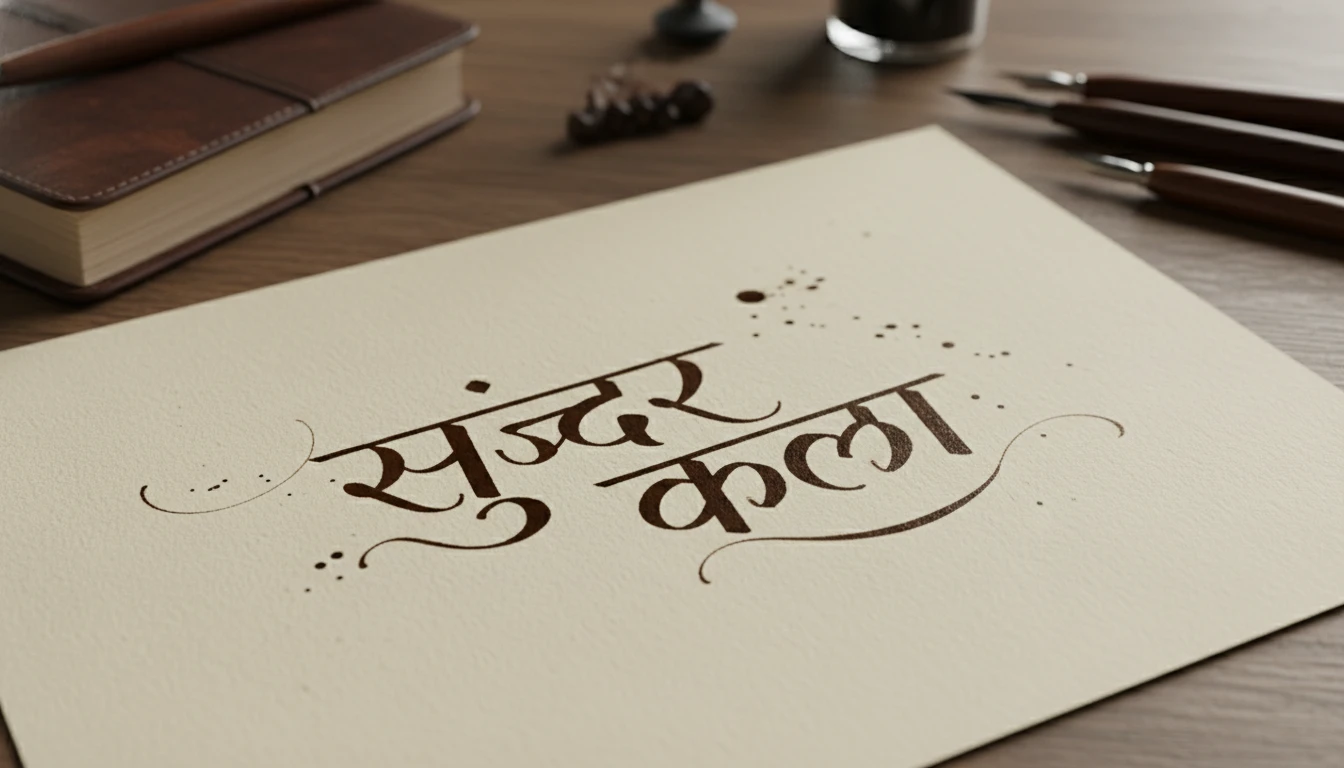 सुंज्दर
कला